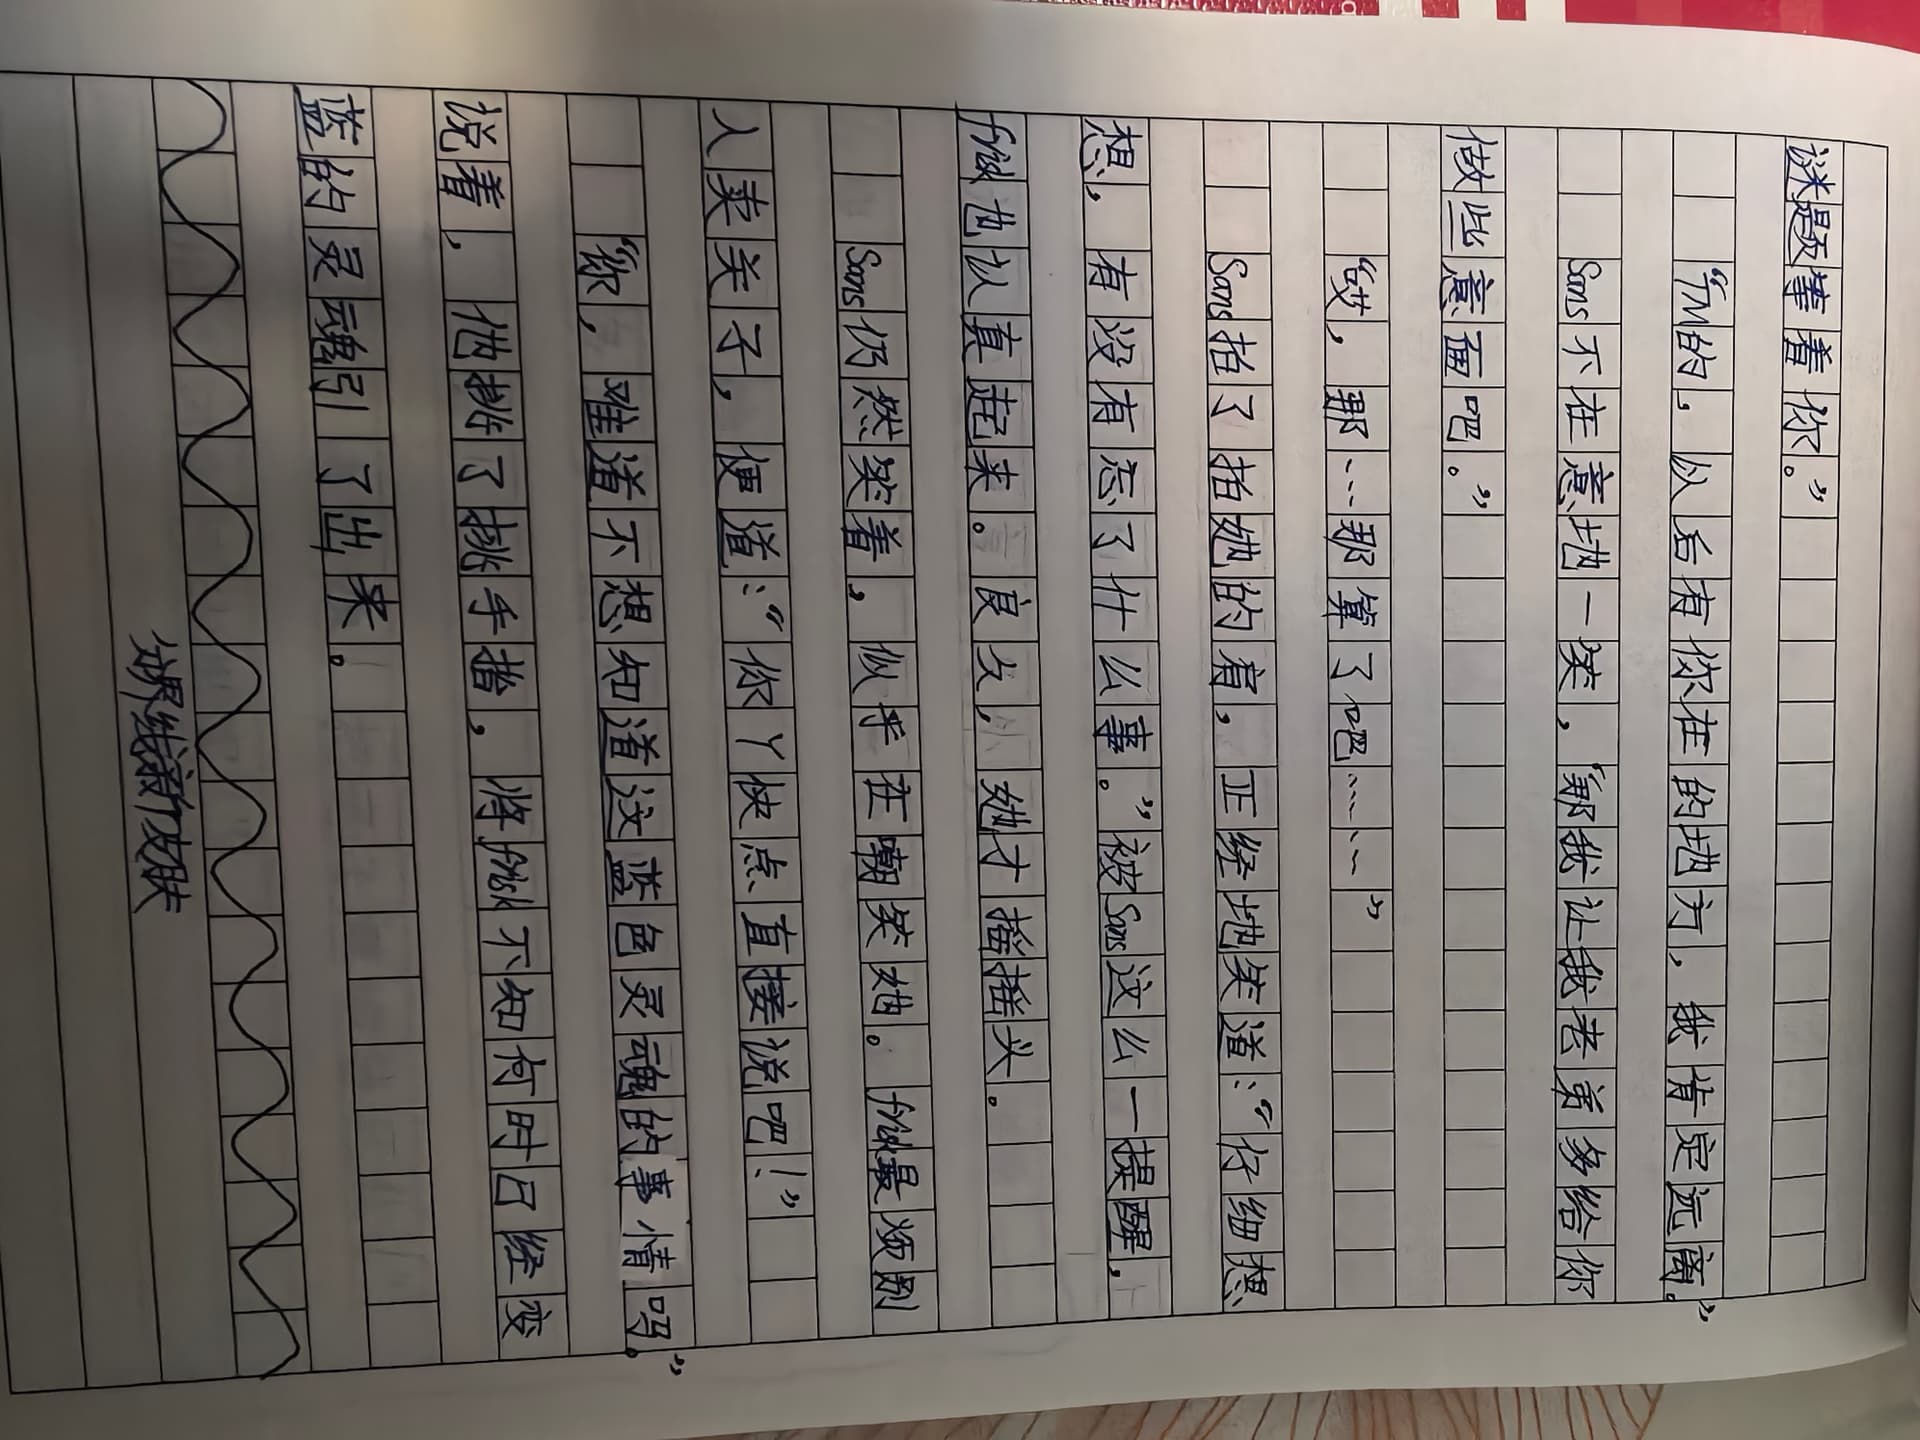 谈题等着你。”
“TM的，从后有你在的地方，我肯定远离。”
Sans不在意地一笑，“那我让我老弟多给你
做些意面吧。”
“哎，那…那算了吧……”
Sans拍了拍她的肩，正经地笑道：“仔细想
想，有没有忘了什么事。”被Sans这么一提醒，
frisk也认真起来。良久，她才摇摇头。
Sans仍然笑着，似乎在嘲笑她。frisk最烦别
人卖关子，便道：“你丫快点直接说吧！”
“你，难道不想知道这蓝色灵魂的事情吗。”
说着，他挑了挑手指，将frisk不知何时已经变
蓝的灵魂引了出来。